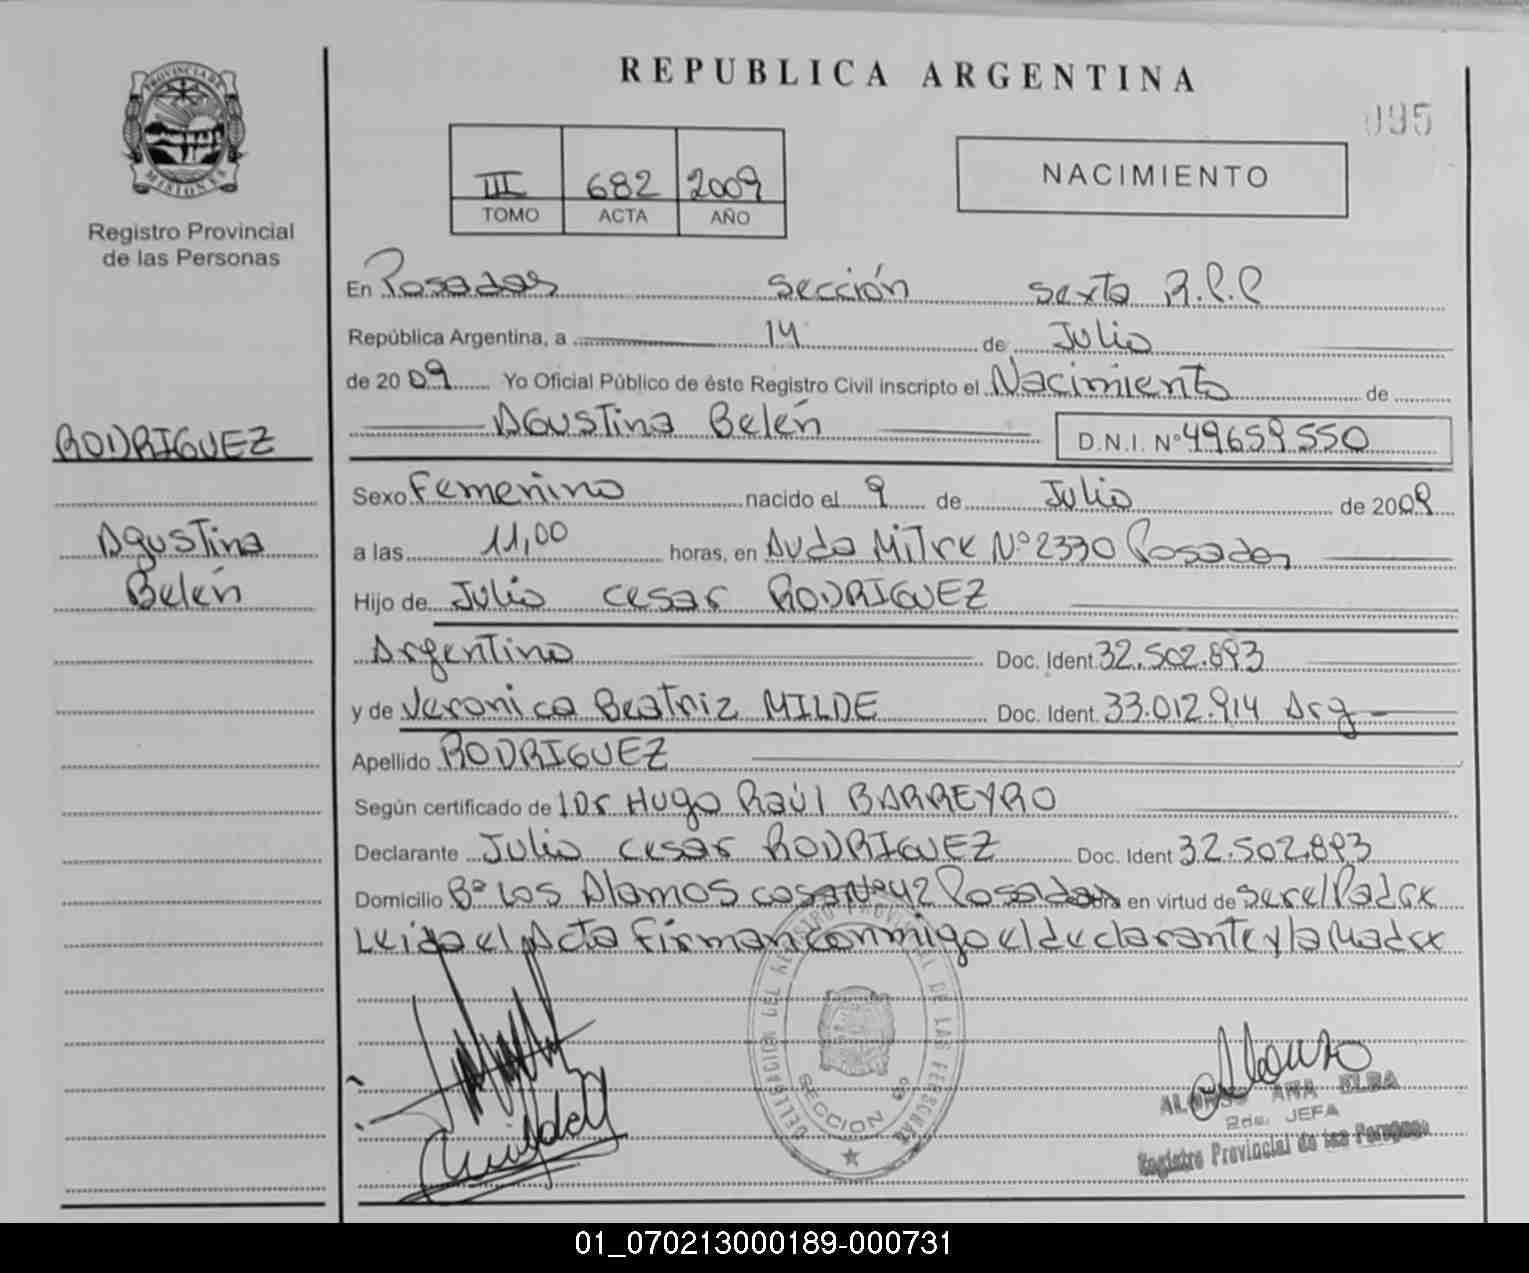 REPUBLICA ARGENTINA
095
PROVINCIA DE
MISIONES
Registro Provincial
de las Personas
III 682 2009
TOMO ACTA AÑO
NACIMIENTO
En Posadas sección sexta R.P.P
República Argentina, a 14 de Julio
de 2009 Yo Oficial Público de éste Registro Civil inscripto el Nacimiento de
Agustina Belén D.N.I. Nº 49659550
RODRIGUEZ
Agustina
Belén
Sexo Femenino nacido el 9 de Julio de 2009
a las 11,00 horas, en Avda Mitre Nº 2330 Posadas
Hijo de Julio Cesar RODRIGUEZ
Argentino Doc. Ident. 32.502.893
y de Veronica Beatriz MILDE Doc. Ident. 33.012.914 Arg
Apellido RODRIGUEZ
Según certificado de Dr Hugo Raúl BARREYRO
Declarante Julio Cesar RODRIGUEZ Doc. Ident 32.502.893
Domicilio Bº Los Alamos casa Nº 42 Posadas en virtud de ser el Padre
Leida el Acta Firman conmigo el declarante y la Madre
DELEGACION DEL REGISTRO PROVINCIAL DE LAS PERSONAS
SECCION 6º
ALONSO ANA ELBA
2da. JEFA
Registro Provincial de las Personas
01_070213000189-000731